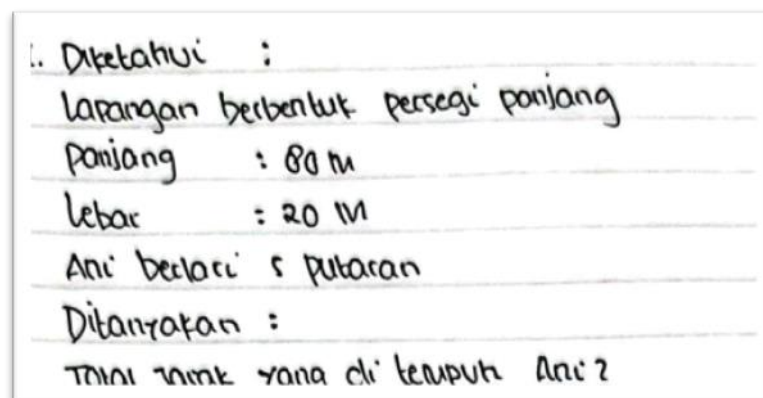 Diketahui :
Lapangan berbentuk persegi panjang
Panjang : 80 m
Lebar : 20 m
Ani berlari 5 putaran
Ditanyakan :
Total jarak yang di tempuh Ani?